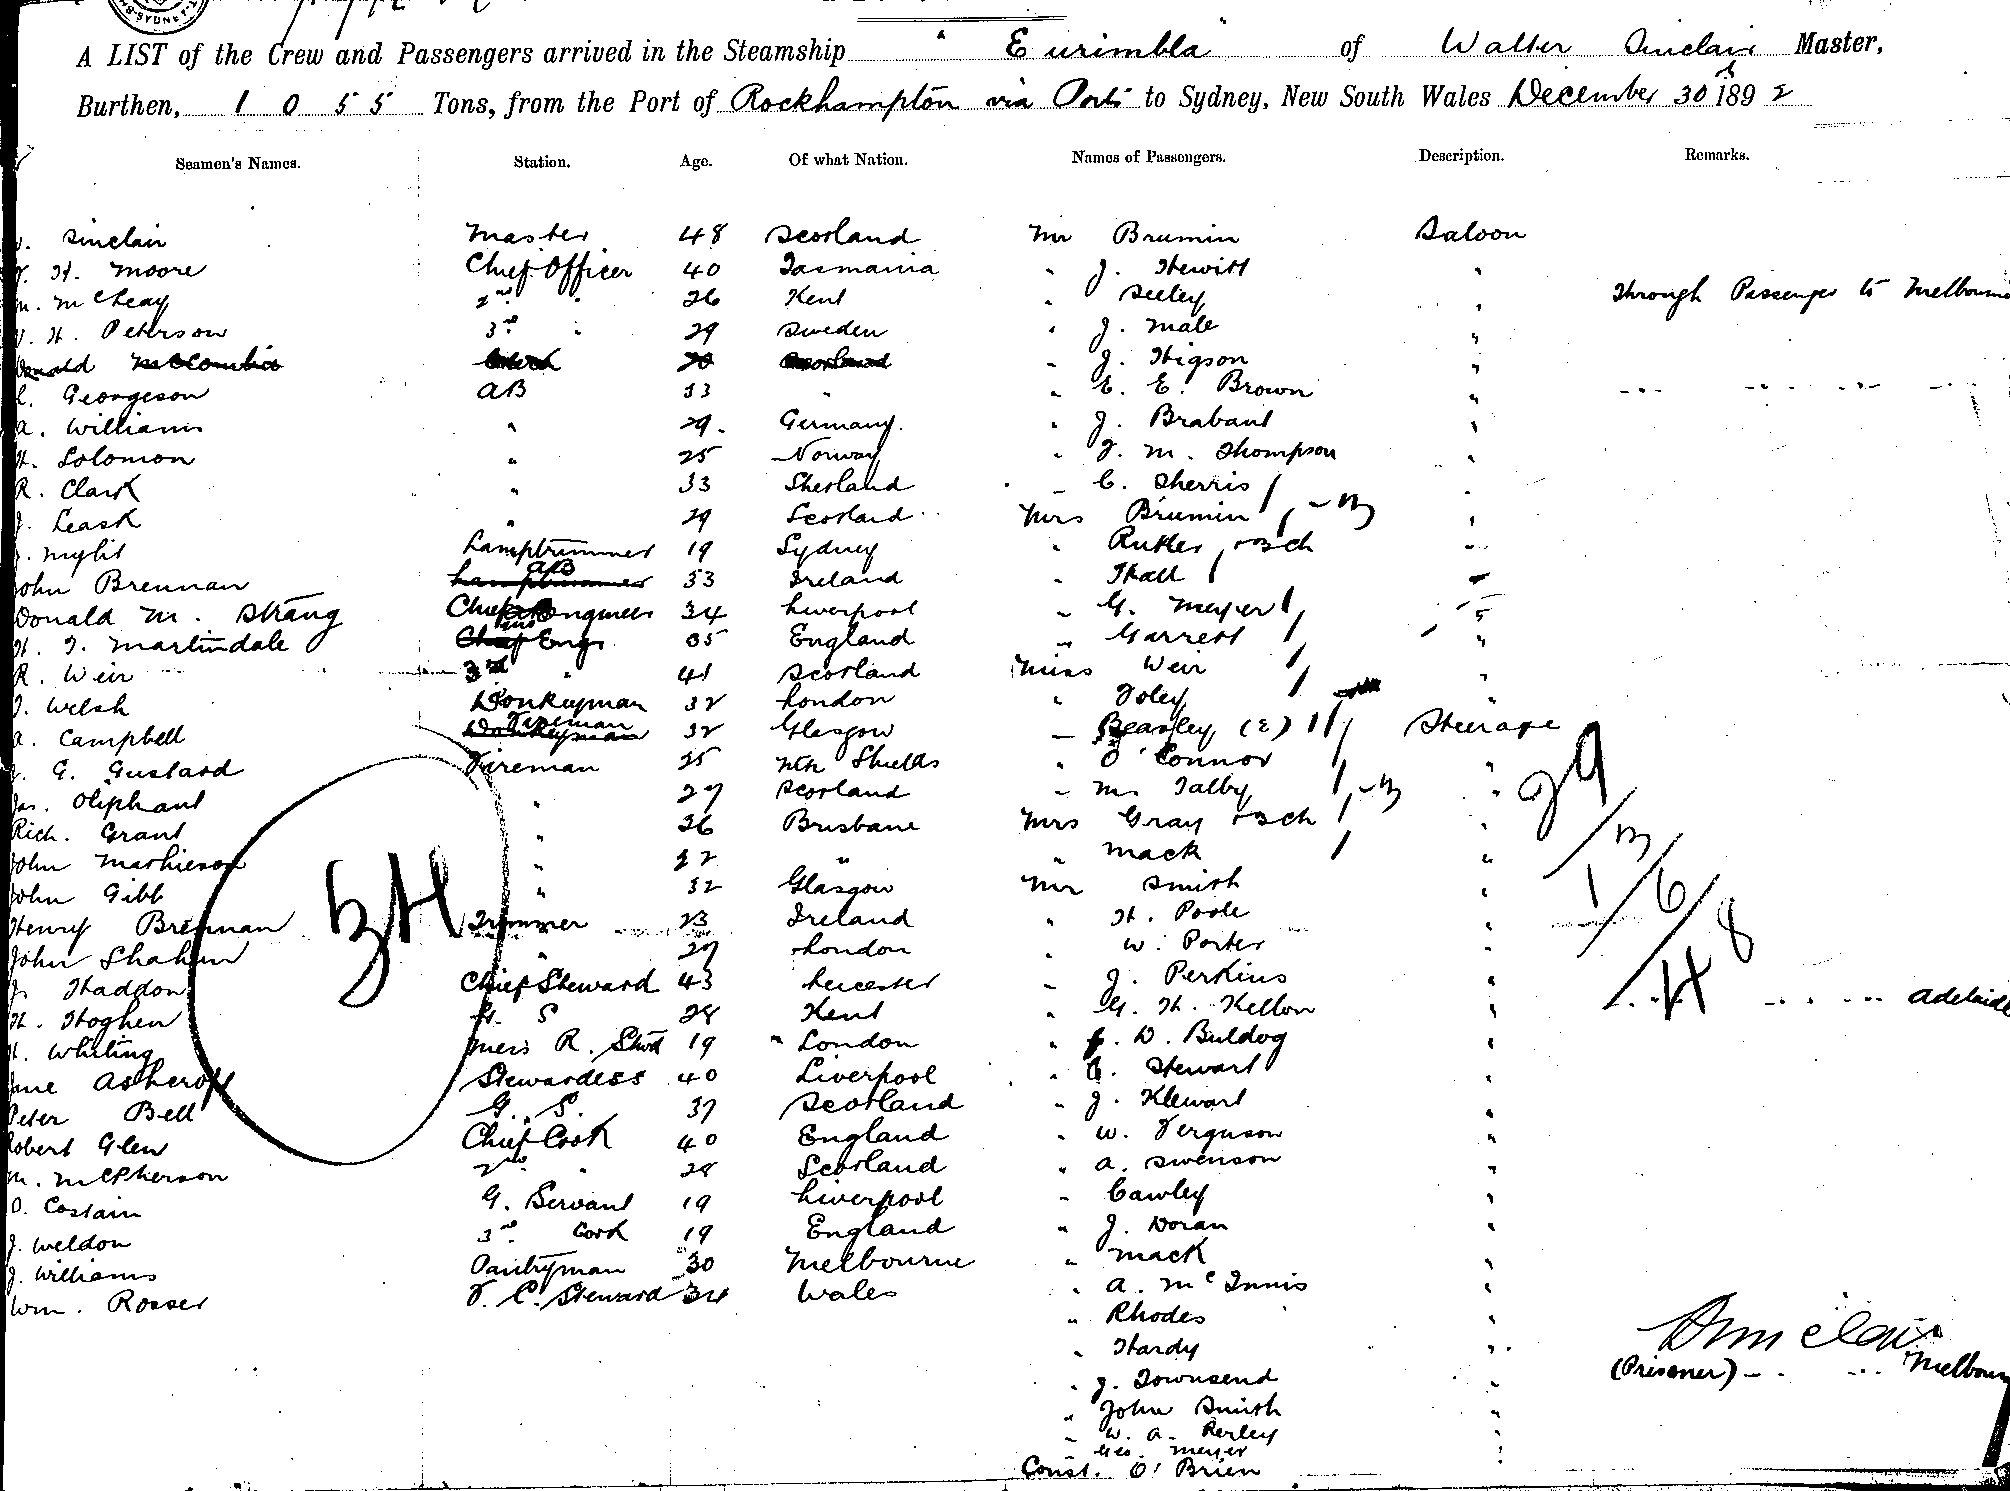 A LIST of the Crew and Passengers arrived in the Steamship "Eurimbla" of Walter Sinclair Master,
Burthen, 1055 Tons, from the Port of Rockhampton via Ports to Sydney, New South Wales December 30th 1892
Seamen's Names. Station. Age. Of what Nation. Names of Passengers. Description. Remarks.
Sinclair Master 48 Scotland Mr Brumin Saloon
H. Moore Chief Officer 40 Tasmania " J. Hewitt "
McCheay 2nd " 26 Kent " Seeley " Through Passenger to Melbourne
H. Peterson 3rd " 29 Sweden " J. Male "
Donald McCombie Clerk 20 Scotland " J. Higson "
Georgeson AB 33 " " E. E. Brown " " " " "
A. Williams " 29 Germany " J. Brabant "
H. Solomon " 25 Norway " J. M. Thompson "
R. Clark " 33 Shetland " C. Sherris "
J. Leask " 29 Scotland Mrs Brumin "
Lamptrimmer 19 Sydney " Rutler + 3 ch "
John Brennan AB 33 Ireland " Hall "
Donald M. Strang Chief Engineer 34 Liverpool " G. Meyer "
H. J. Martindale 2nd Engr 35 England " Garrett "
R. Weir 3rd " 41 Scotland Miss Weir "
J. Welsh Donkeyman 32 London " Foley "
A. Campbell Fireman 32 Glasgow " Beasley (2) Steerage
J. G. Gustard Fireman 25 Nth Shields " O'Connor "
Jas. Oliphant " 27 Scotland " M. Talby "
Rich. Grant " 26 Brisbane Mrs Gray + 3 ch "
John Mathieson " 22 " " Mack "
John Gibb " 32 Glasgow Mr Smith "
Henry Brennan Trimmer 23 Ireland " H. Poole "
John Shahan " 27 London " W. Porter "
J. Haddon Chief Steward 43 Leicester " J. Perkins "
H. Hoghen S 28 Kent " G. H. Kellon " " " " Adelaide
H. Whiting Mess R. Stwd 19 " London " D. Buldog "
Jane Ashcroft Stewardess 40 Liverpool " E. Stewart "
Peter Bell G. S. 37 Scotland " J. Klewart "
Robert Glen Chief Cook 40 England " W. Ferguson "
M. McPherson 2nd " 28 Scotland " A. Swenson "
O. Costain G. Servant 19 Liverpool " Cawley "
J. Weldon 3rd Cook 19 England " J. Doran "
J. Williams Pantryman 30 Melbourne " Mack "
Wm. Rosser F. C. Steward 34 Wales " A. McInnis "
" Rhodes "
" Hardy "
" J. Townsend " (Prisoner) " " Melbourne
" John Smith "
" W. A. Perley "
Geo. Meyer "
Const. O'Brien "
34
29
3
1
6
8